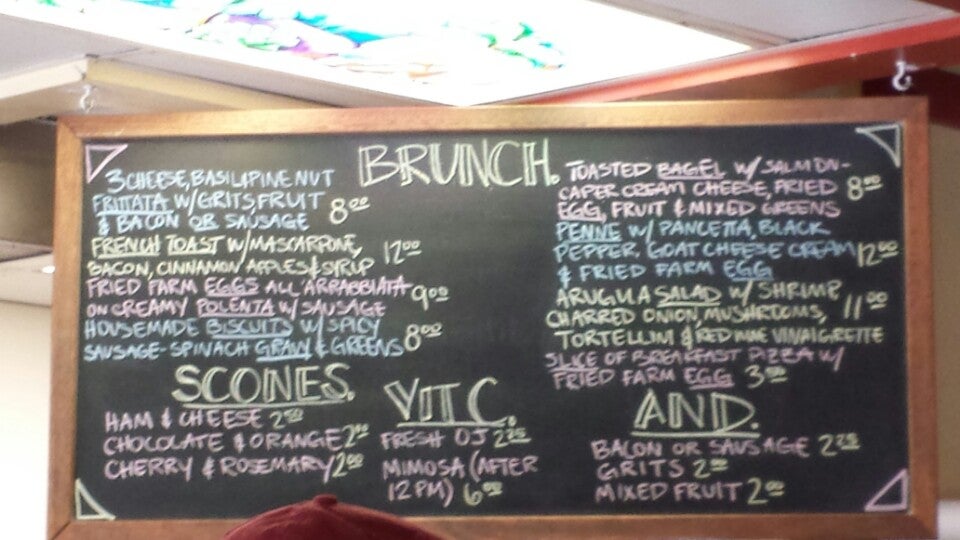 BRUNCH.
3 CHEESE, BASIL & PINE NUT
FRITTATA W/ GRITS FRUIT
& BACON OR SAUSAGE 8.00
FRENCH TOAST W/ MASCARPONE,
BACON, CINNAMON APPLES & SYRUP 12.00
FRIED FARM EGGS ALL'ARRABBIATA
ON CREAMY POLENTA W/ SAUSAGE 9.00
HOUSEMADE BISCUITS W/ SPICY
SAUSAGE-SPINACH GRAVY & GREENS 8.00
TOASTED BAGEL W/ SALMON-
CAPER CREAM CHEESE, FRIED
EGG, FRUIT & MIXED GREENS 8.00
PENNE W/ PANCETTA, BLACK
PEPPER, GOAT CHEESE CREAM
& FRIED FARM EGG 12.00
ARUGULA SALAD W/ SHRIMP
CHARRED ONION, MUSHROOMS,
TORTELLINI & RED WINE VINAIGRETTE 11.00
SLICE OF BREAKFAST PIZZA W/
FRIED FARM EGG 3.50
SCONES.
HAM & CHEESE 2.50
CHOCOLATE & ORANGE 2.00
CHERRY & ROSEMARY 2.00
VIT C.
FRESH OJ 2.25
MIMOSA (AFTER
12PM) 6.00
AND.
BACON OR SAUSAGE 2.25
GRITS 2.00
MIXED FRUIT 2.00